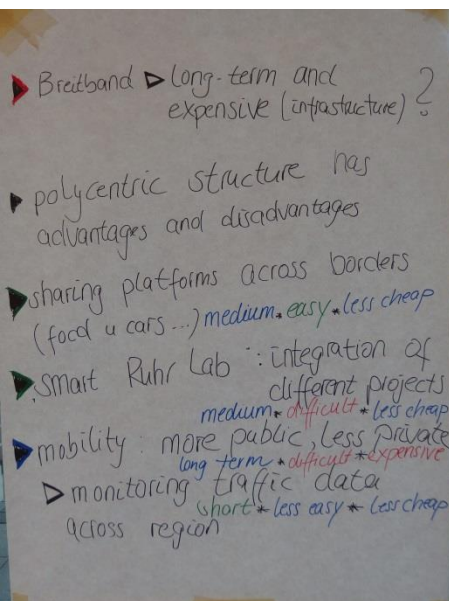 ▶ Breitband ▷ long-term and
expensive (infrastucture) ?
▶ polycentric structure has
advantages and disadvantages
▶ sharing platforms across borders
(food u cars ...) medium * easy * less cheap
▶ Smart Ruhr Lab : integration of
different projects
medium * difficult * less cheap
▶ mobility : more public, less private
long term * difficult * expensive
▷ monitoring traffic data
across region short * less easy * less cheap